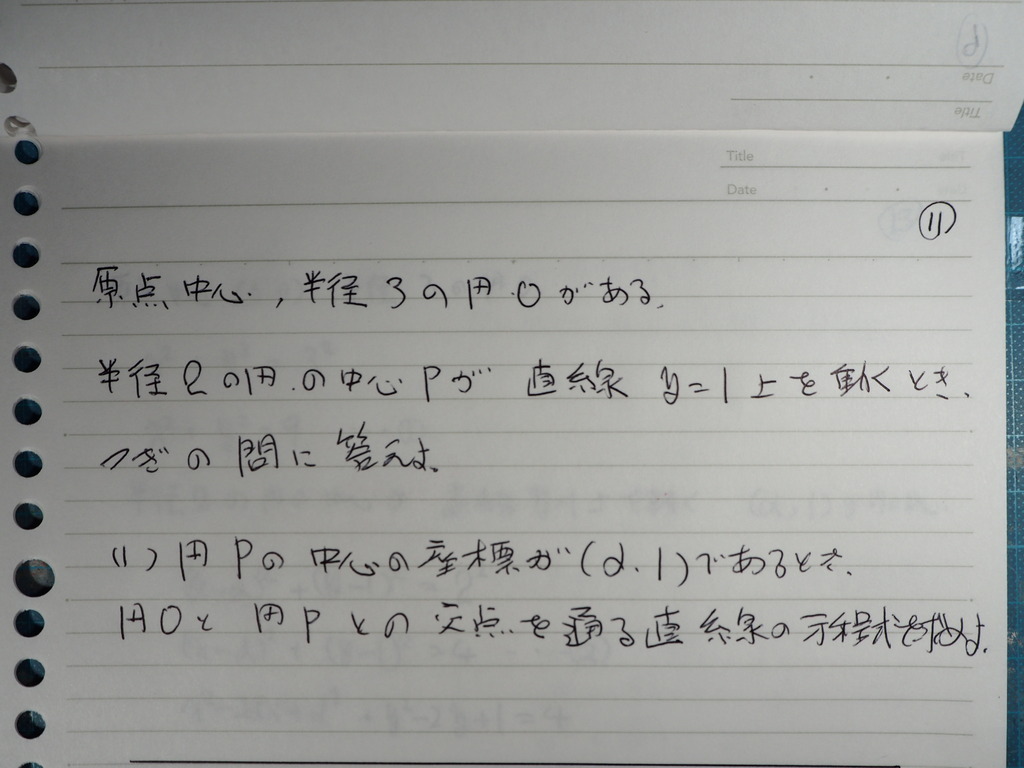 Date
Title
Title
Date
⑪
原点中心、半径3の円Oがある。
半径2の円の中心Pが 直線 y=1上を動くとき、
つぎの問に答えよ。
(1)円Pの中心の座標が(α,1)であるとき、
円Oと円Pとの交点を通る直線の方程式を求めよ。